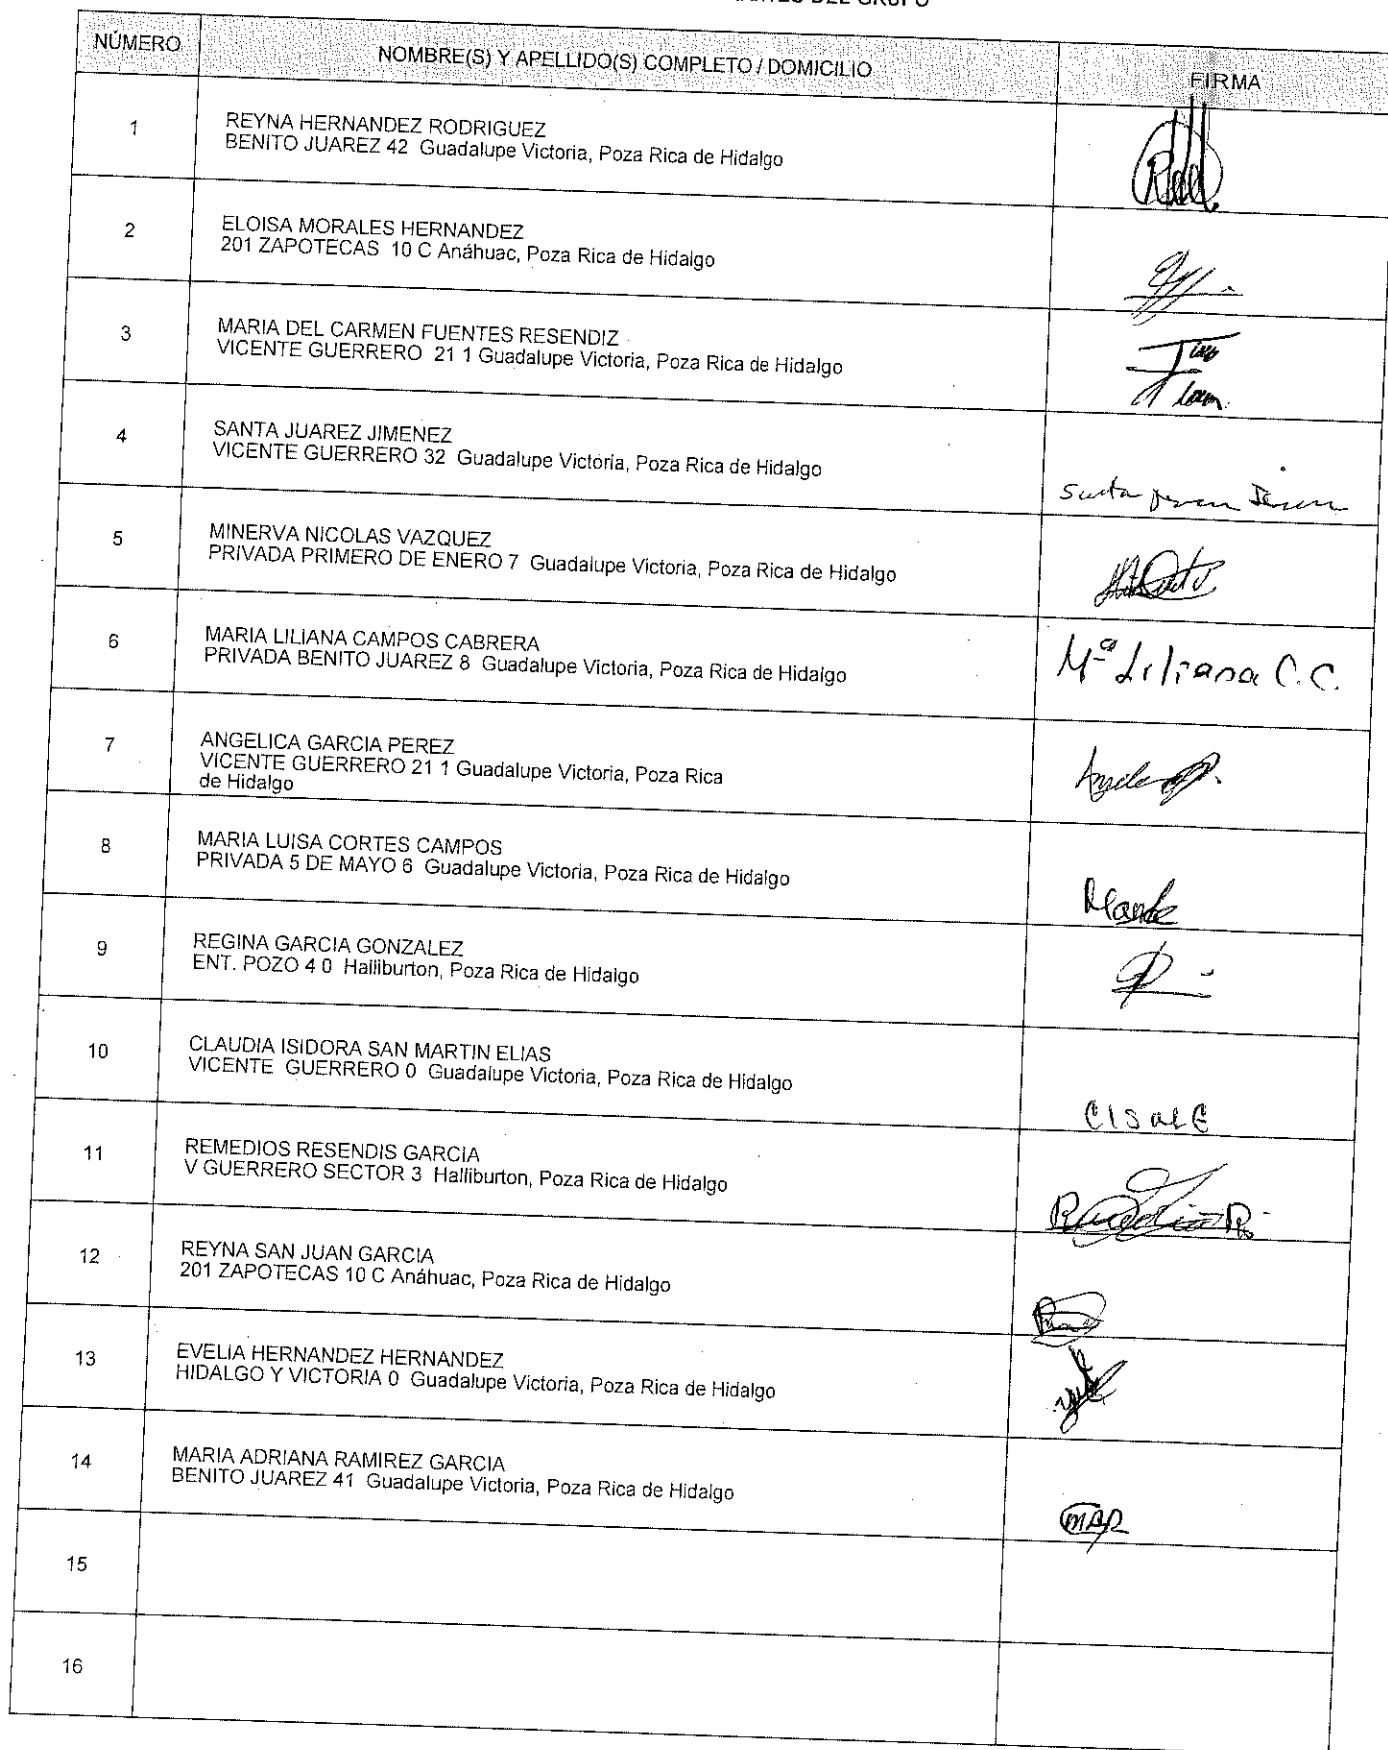 DEL GRUPO
NÚMERO NOMBRE(S) Y APELLIDO(S) COMPLETO / DOMICILIO FIRMA
1 REYNA HERNANDEZ RODRIGUEZ
BENITO JUAREZ 42 Guadalupe Victoria, Poza Rica de Hidalgo
2 ELOISA MORALES HERNANDEZ
201 ZAPOTECAS 10 C Anáhuac, Poza Rica de Hidalgo
3 MARIA DEL CARMEN FUENTES RESENDIZ
VICENTE GUERRERO 21 1 Guadalupe Victoria, Poza Rica de Hidalgo
4 SANTA JUAREZ JIMENEZ
VICENTE GUERRERO 32 Guadalupe Victoria, Poza Rica de Hidalgo
5 MINERVA NICOLAS VAZQUEZ
PRIVADA PRIMERO DE ENERO 7 Guadalupe Victoria, Poza Rica de Hidalgo
6 MARIA LILIANA CAMPOS CABRERA
PRIVADA BENITO JUAREZ 8 Guadalupe Victoria, Poza Rica de Hidalgo
Mª Liliana C.C.
7 ANGELICA GARCIA PEREZ
VICENTE GUERRERO 21 1 Guadalupe Victoria, Poza Rica
de Hidalgo
8 MARIA LUISA CORTES CAMPOS
PRIVADA 5 DE MAYO 6 Guadalupe Victoria, Poza Rica de Hidalgo
9 REGINA GARCIA GONZALEZ
ENT. POZO 4 0 Halliburton, Poza Rica de Hidalgo
10 CLAUDIA ISIDORA SAN MARTIN ELIAS
VICENTE GUERRERO 0 Guadalupe Victoria, Poza Rica de Hidalgo
11 REMEDIOS RESENDIS GARCIA
V GUERRERO SECTOR 3 Halliburton, Poza Rica de Hidalgo
12 REYNA SAN JUAN GARCIA
201 ZAPOTECAS 10 C Anáhuac, Poza Rica de Hidalgo
13 EVELIA HERNANDEZ HERNANDEZ
HIDALGO Y VICTORIA 0 Guadalupe Victoria, Poza Rica de Hidalgo
14 MARIA ADRIANA RAMIREZ GARCIA
BENITO JUAREZ 41 Guadalupe Victoria, Poza Rica de Hidalgo
15
16